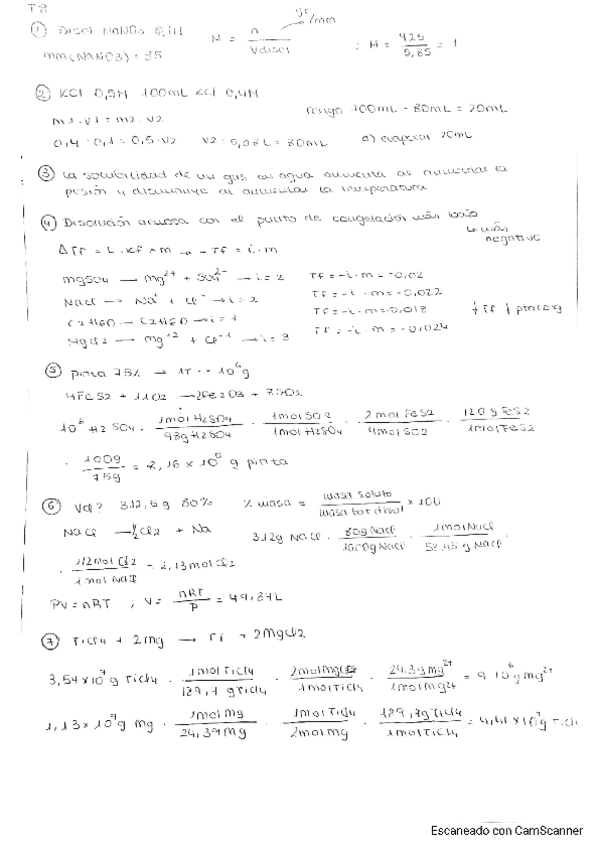 T8
① Disol NaNO3
gr/mm
M = n / Vdisol ; M = 425/85 / 5 = 1
mm(NaNO3) = 85
② KCl 0,5M 100mL KCl 0,4M
m1·V1 = m2·V2 tengo 100mL - 80mL = 20mL
0,4·0,1 = 0,5·V2 V2 = 0,08L = 80mL a) evaporar 20mL
③ La solubilidad de un gas en agua aumenta al aumentar la
presión y disminuye al aumentar la temperatura
④ Disolución acuosa con el punto de congelación más bajo
↳ más negativo
ΔTf = i·Kf·m → -Tf = i·m
MgSO4 → Mg2+ + SO42- → i = 2 Tf = -i·m = -0,02
NaCl → Na+ + Cl- → i = 2 Tf = -i·m = -0,022
C2H6O → C2H6O → i = 1 Tf = -i·m = -0,018
MgCl2 → Mg+2 + Cl-1 → i = 3 Tf = -i·m = -0,024
⑤ pirita 75% → 1T → 10^6 g
4FeS2 + 11O2 → 2Fe2O3 + 8SO2
10^6 H2SO4 · 1mol H2SO4 / 98g H2SO4 · 1mol SO2 / 1mol H2SO4 · 2mol FeS2 / 4mol SO2 · 120g FeS2 / 1mol FeS2
· 100g / 75g = 8,16 × 10^5 g pirita
⑥ Vcl? 312,5g 80% % masa = masa soluto / masa tot disol × 100
NaCl → ½Cl2 + Na 312g NaCl · 80g NaCl / 100g NaCl · 1mol NaCl / 58,45g NaCl
· 1/2mol Cl2 / 1mol NaCl = 2,13mol Cl2
PV = nRT ; V = nRT / P = 49,87L
⑦ TiCl4 + 2Mg → Ti + 2MgCl2
3,54×10^7 g TiCl4 · 1mol TiCl4 / 189,7g TiCl4 · 2mol Mg / 1mol TiCl4 · 24,3g Mg2+ / 1mol Mg2+ = 9·10^6 g Mg2+
1,13×10^7 g Mg · 1mol Mg / 24,3g Mg · 1mol TiCl4 / 2mol Mg · 189,7g TiCl4 / 1mol TiCl4 = 4,41×10^7 g TiCl4
Escaneado con CamScanner